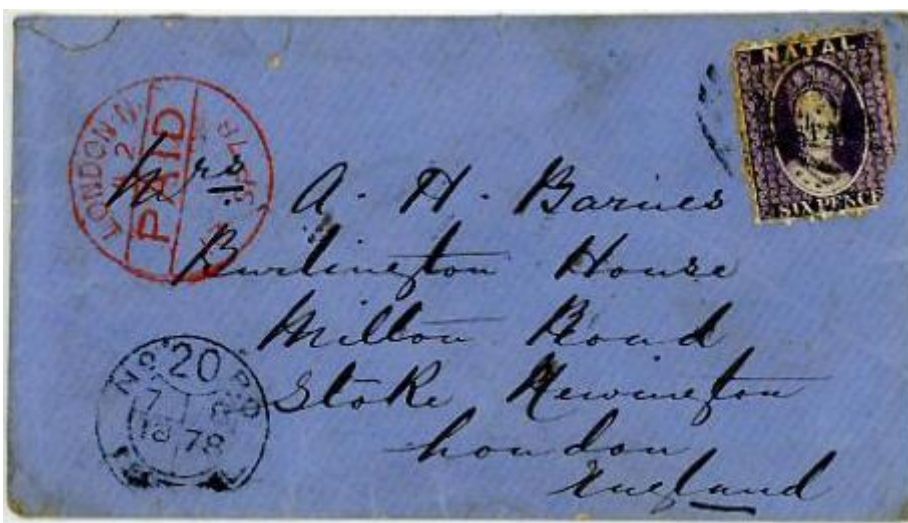 NATAL
SIX PENCE
LONDON N
PAID
Mrs. A. H. Barnes
Burlington House
Milton Road
Stoke Newington
London
England
No. 20
7
1878